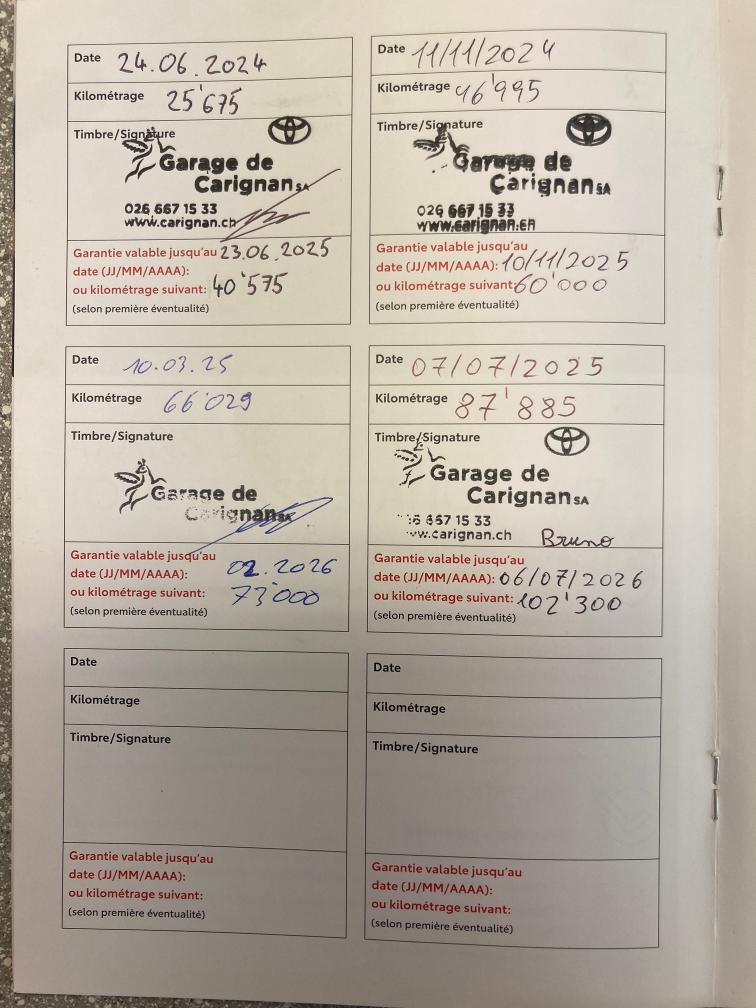 Date 24.06.2024
Kilométrage 25'675
Timbre/Signature
Garage de
Carignan SA
026 667 15 33
www.carignan.ch
Garantie valable jusqu'au 23.06.2025
date (JJ/MM/AAAA):
ou kilométrage suivant: 40'575
(selon première éventualité)
Date 11/11/2024
Kilométrage 46'995
Timbre/Signature
Garage de
Carignan SA
026 667 15 33
www.carignan.ch
Garantie valable jusqu'au
date (JJ/MM/AAAA): 10/11/2025
ou kilométrage suivant: 60'000
(selon première éventualité)
Date 10.03.25
Kilométrage 66'029
Timbre/Signature
Garage de
Carignan SA
Garantie valable jusqu'au
date (JJ/MM/AAAA): 02.2026
ou kilométrage suivant: 73'000
(selon première éventualité)
Date 07/07/2025
Kilométrage 87'885
Timbre/Signature
Garage de
Carignan SA
6 667 15 33
w.carignan.ch Bruno
Garantie valable jusqu'au
date (JJ/MM/AAAA): 06/07/2026
ou kilométrage suivant: 102'300
(selon première éventualité)
Date
Kilométrage
Timbre/Signature
Garantie valable jusqu'au
date (JJ/MM/AAAA):
ou kilométrage suivant:
(selon première éventualité)
Date
Kilométrage
Timbre/Signature
Garantie valable jusqu'au
date (JJ/MM/AAAA):
ou kilométrage suivant:
(selon première éventualité)